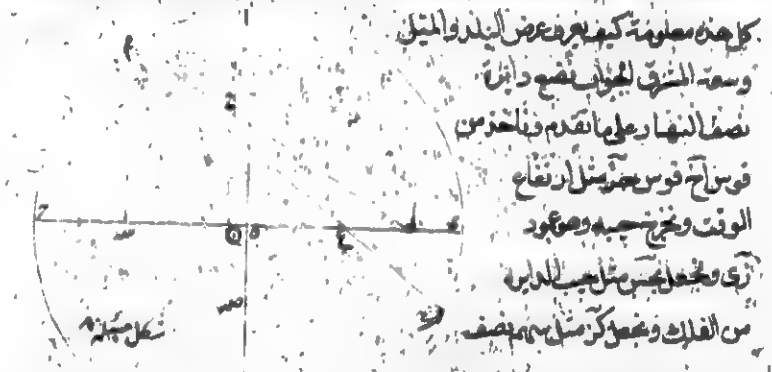 كل هذه معلومة كيف يعرف عرض البلد والميل
وسعة المشرق الجواب نضع دايرة
نصف النهار على ما تقدم وناخذ من
قوس اخ قوس مثل ارتفاع
الوقت ونخرج جيبه وهو عمود
زى ونجعل مثل جيب الداير
من الفلك ونجعل كز مثل سهم نصف
شكل مسئلة